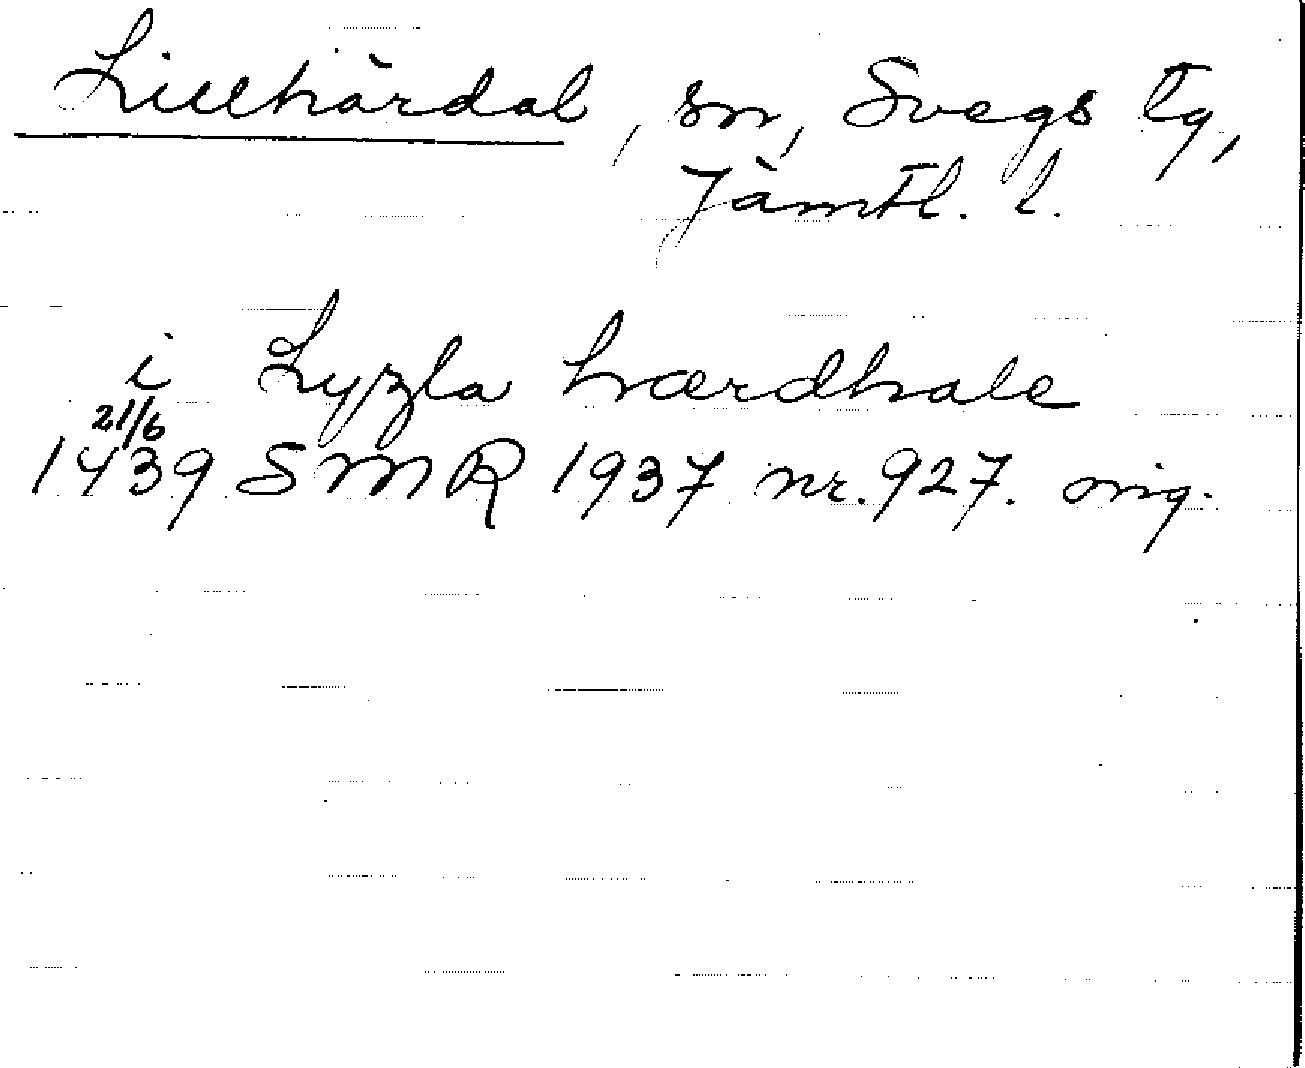 Lillhärdal, sn, Svegs tg,
Jämtl. l.
i Lyzla hærdhale
21/6
1439 SMR 1937 nr. 927. orig.